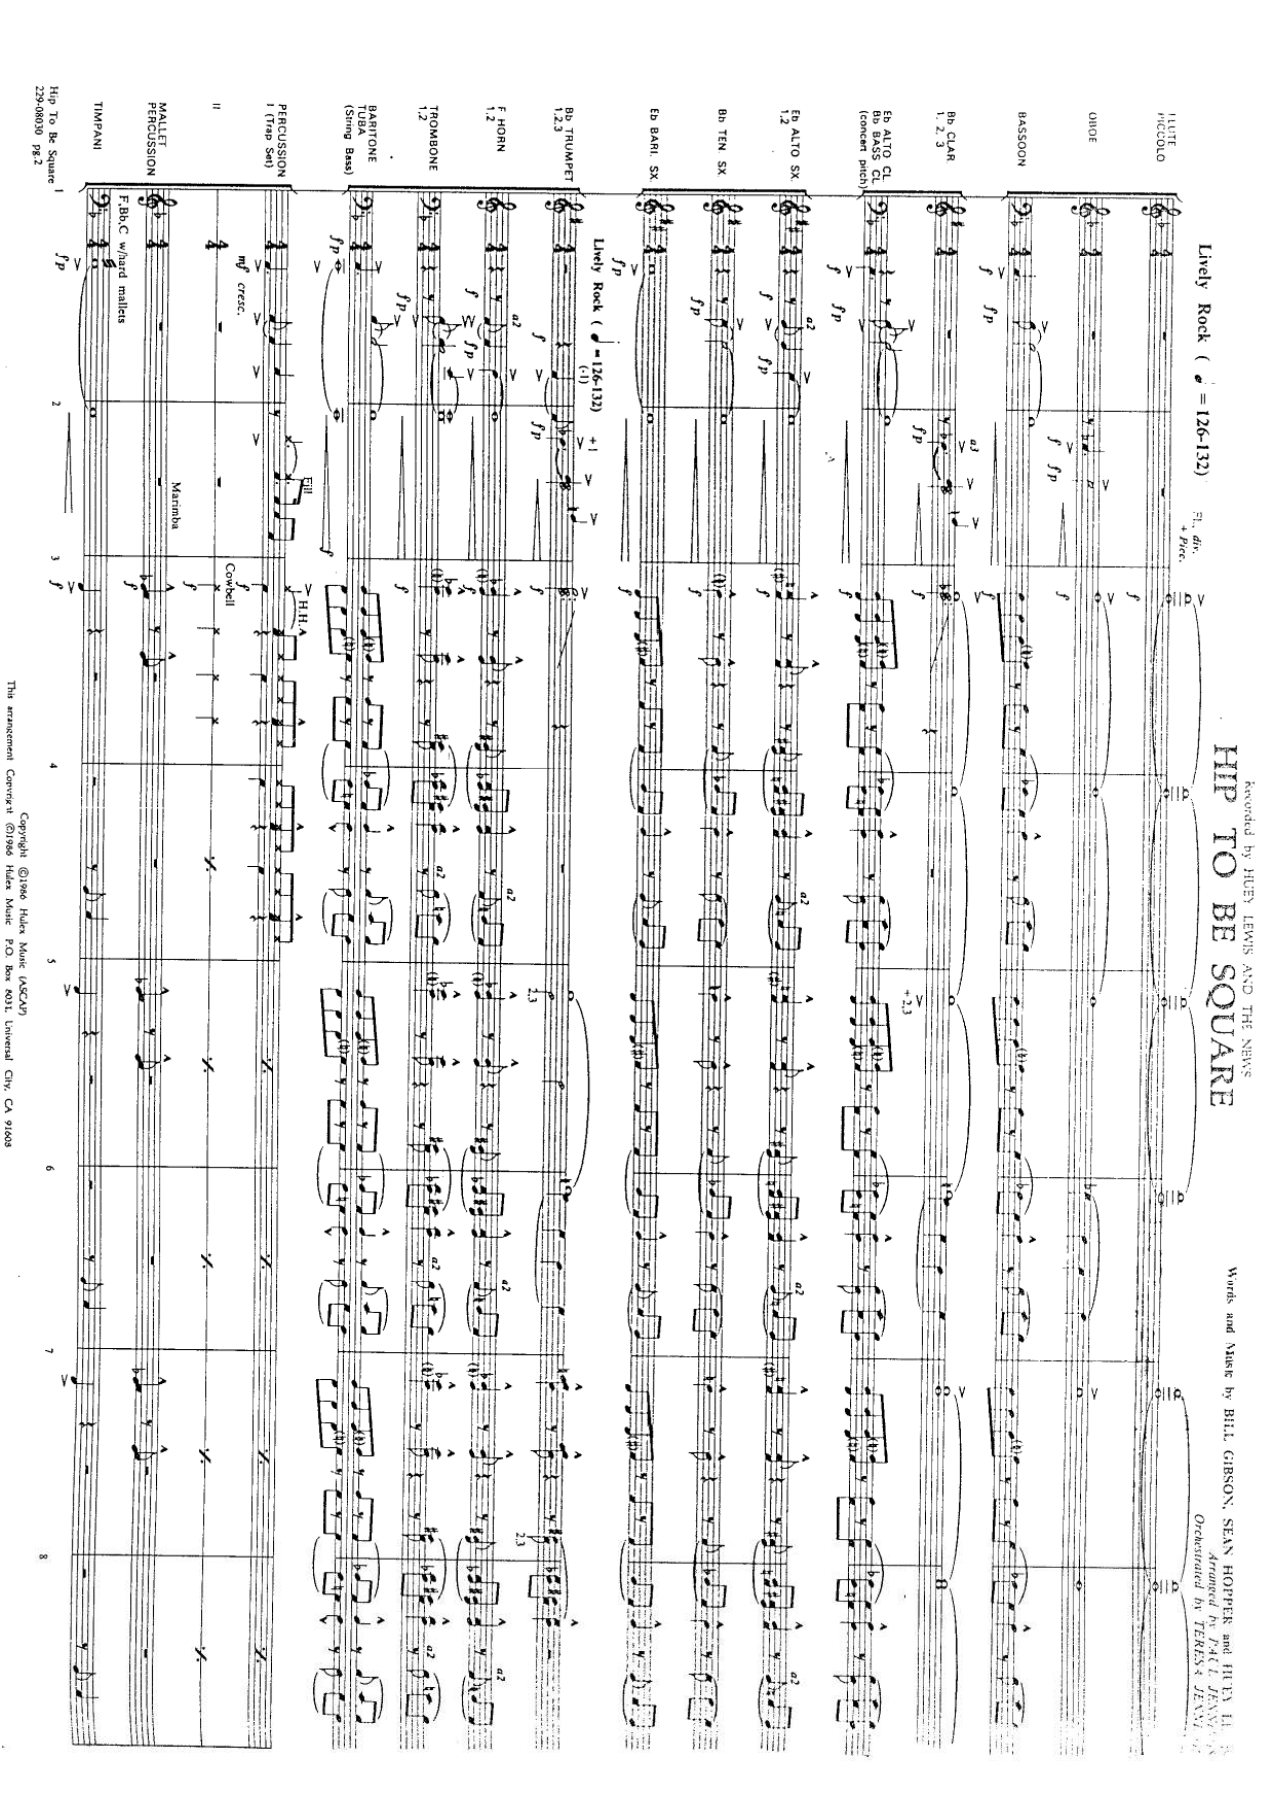 Recorded by HUEY LEWIS AND THE NEWS
HIP TO BE SQUARE
Words and Music by BILL GIBSON, SEAN HOPPER and HUEY LE
Arranged by PAUL JENN
Orchestrated by TERESA JENN
Lively Rock ( = 126-132)
FL. div.
+ Picc.
FLUTE
PICCOLO
OBOE
f fp
f
BASSOON
f fp
f
Bb CLAR
1, 2, 3
a3
fp
f
+2,3
Eb ALTO CL
Bb BASS CL
(concert pitch)
f fp
f
Eb ALTO SX.
1.2
a2
f fp
f
a2
a2
a2
Bb TEN SX.
fp
f
Eb BARI. SX.
fp
f
Lively Rock ( = 126-132)
(-1)
+1
Bb TRUMPET
1.2.3
f fp
f
2,3
2,3
F HORN
1.2
a2
f fp
f
a2
a2
a2
TROMBONE
1.2
fp
f
a2
a2
a2
BARITONE
TUBA
(String Bass)
fp
f
PERCUSSION
I (Trap Set)
mf cresc.
Fill
H.H.
f
II
Cowbell
f
MALLET
PERCUSSION
Marimba
f
TIMPANI
F,Bb,C w/hard mallets
fp
f
1 2 3 4 5 6 7 8
Hip To Be Square
229-08030 pg.2
Copyright ©1986 Hulex Music (ASCAP)
This arrangement Copyright ©1986 Hulex Music P.O. Box 8031, Universal City, CA 91608